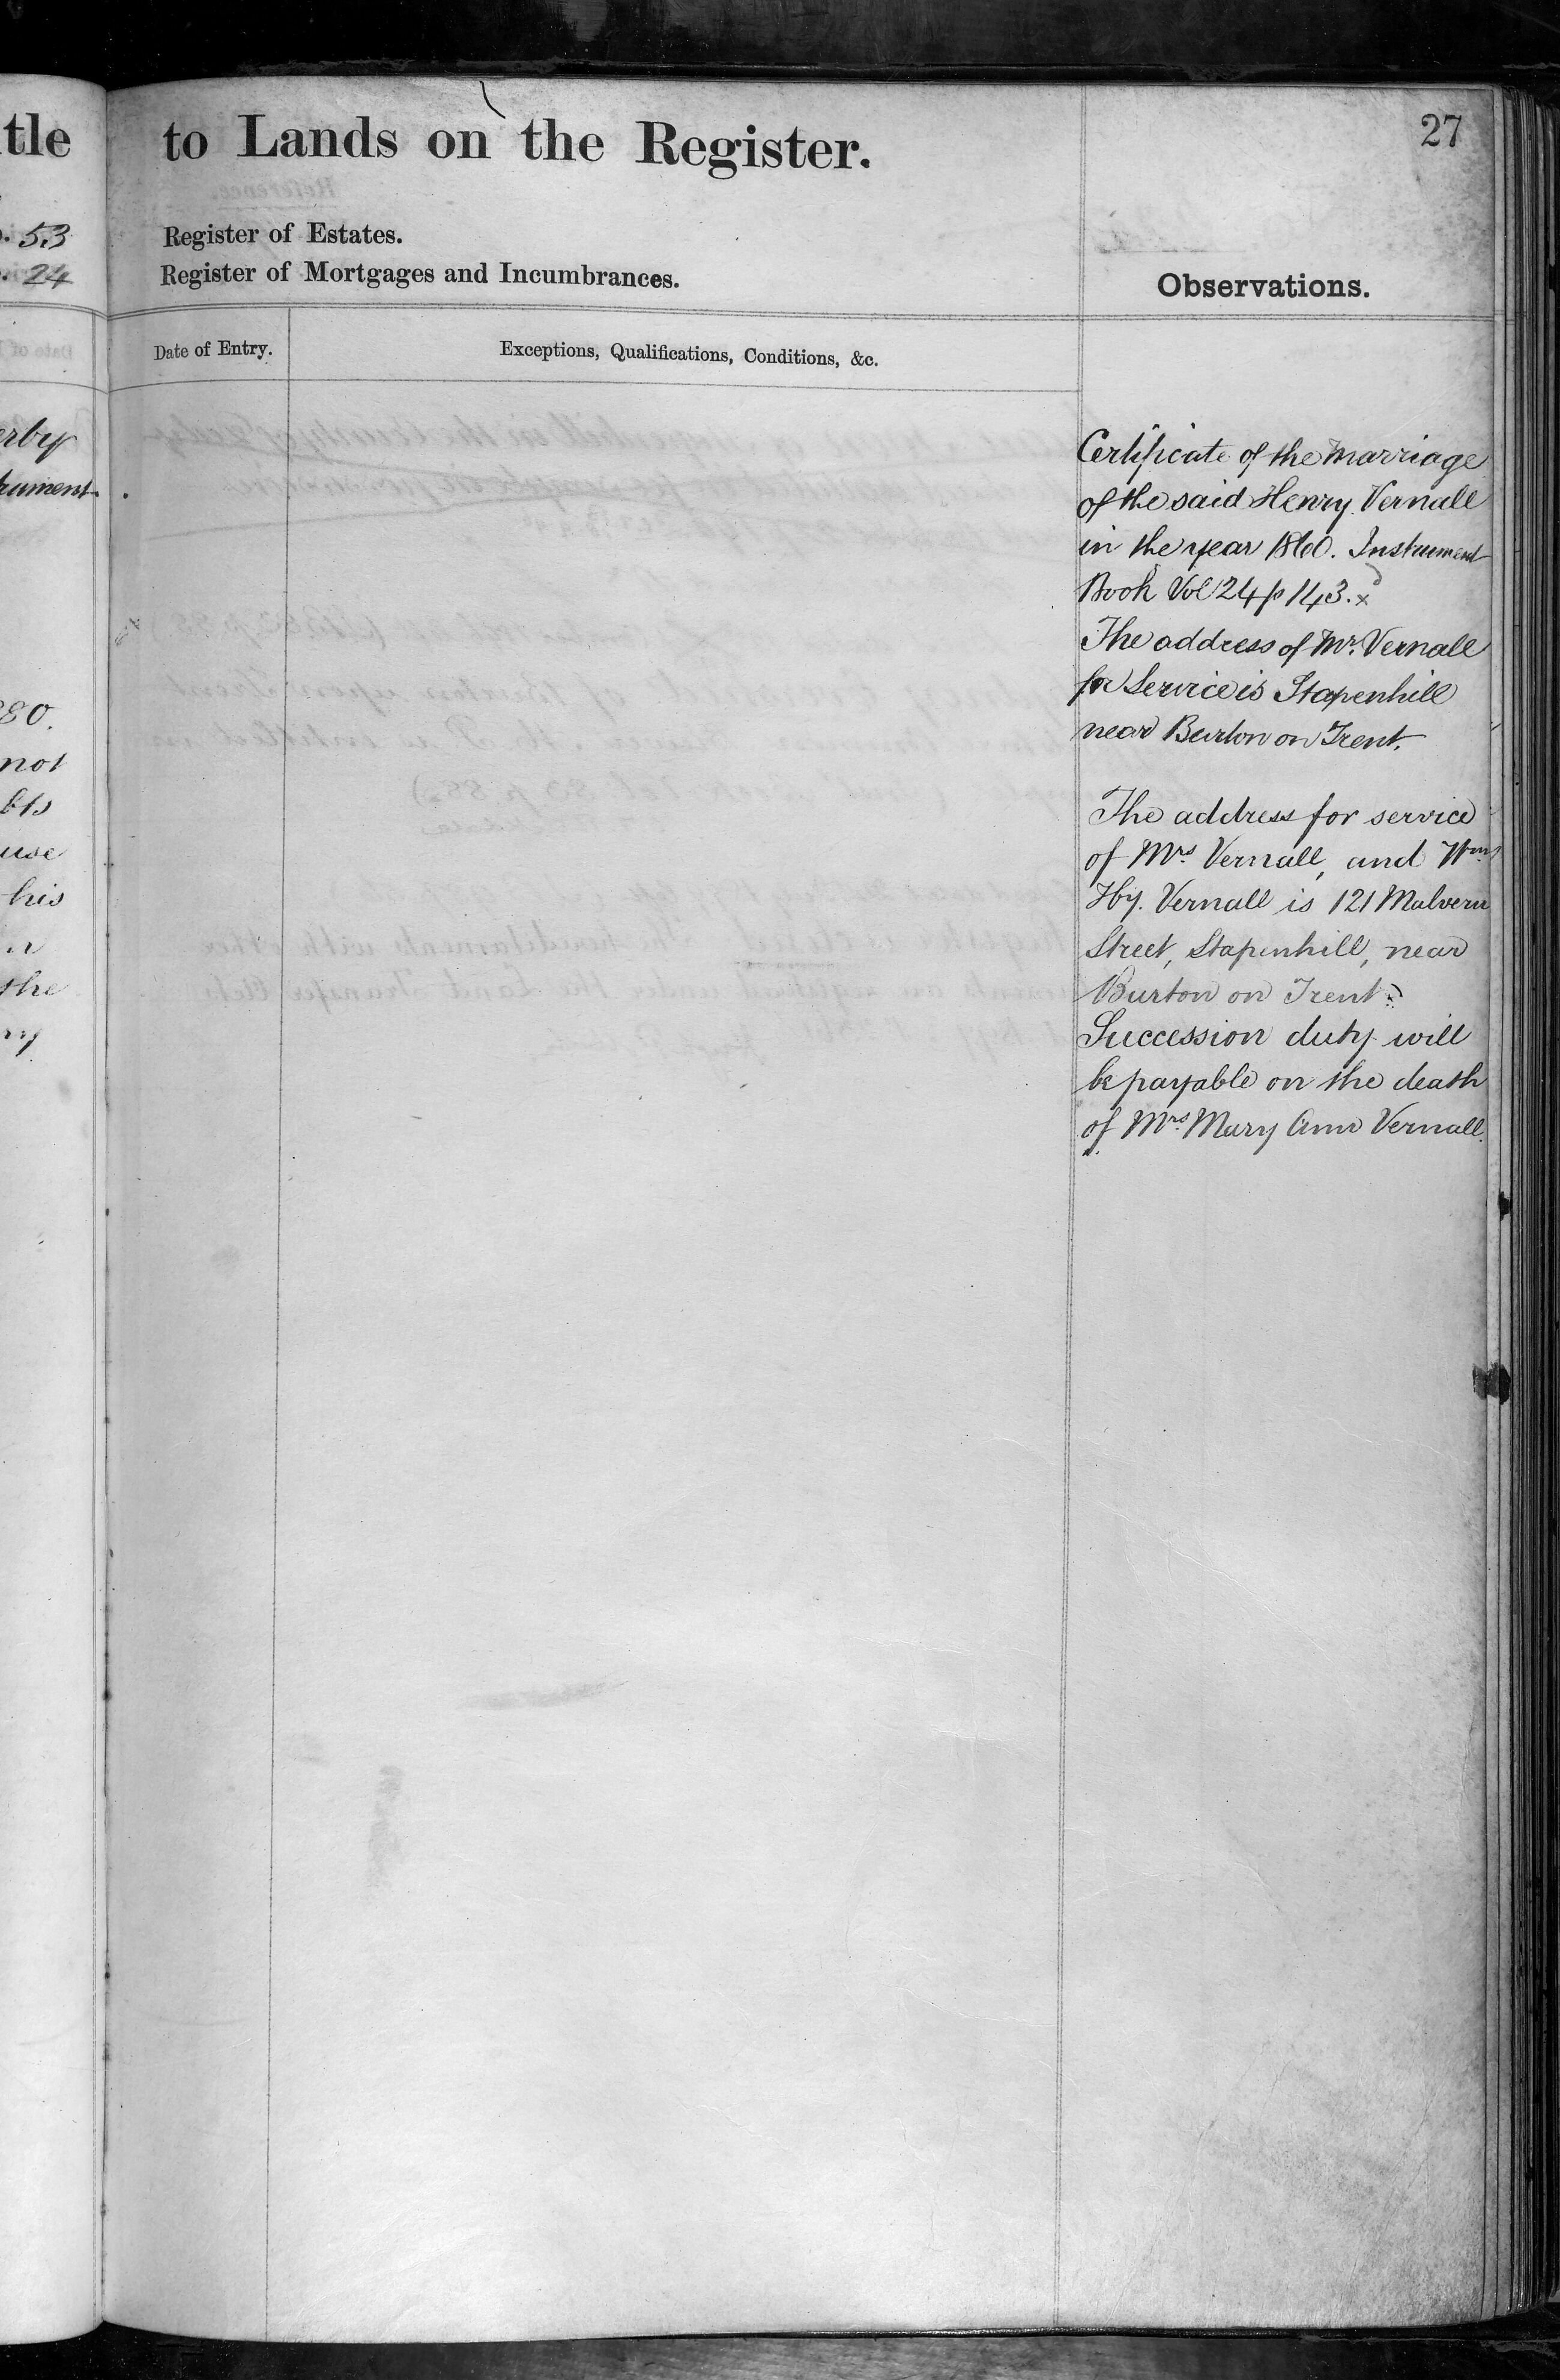 tle
53
24
erby
trument.
80.
not
bts
use
his
the
ry
to Lands on the Register.
27
Register of Estates.
Register of Mortgages and Incumbrances.
Observations.
Date of Entry.
Exceptions, Qualifications, Conditions, &c.
Certificate of the Marriage
of the said Henry Vernall
in the year 1860. Instrument
Book Vol 24 p 143. x
The address of Mr. Vernall
for Service is Stapenhill
near Burton on Trent.
The address for service
of Mrs. Vernall, and Wm.
Hy. Vernall is 121 Malvern
Street, Stapenhill, near
Burton on Trent.
Succession duty will
be payable on the death
of Mrs. Mary Ann Vernall.